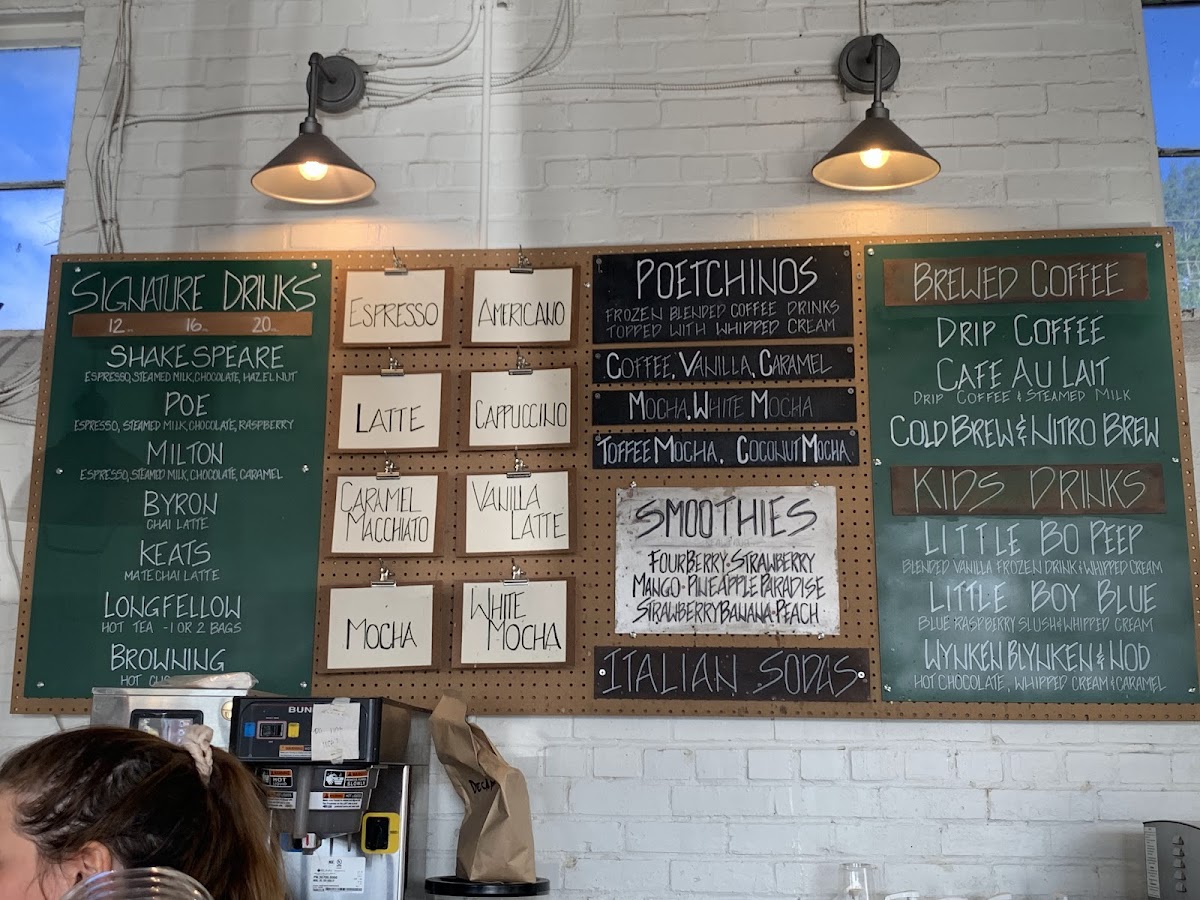 SIGNATURE DRINKS
12 16 20
SHAKESPEARE
ESPRESSO, STEAMED MILK, CHOCOLATE, HAZELNUT
POE
ESPRESSO, STEAMED MILK, CHOCOLATE, RASPBERRY
MILTON
ESPRESSO, STEAMED MILK, CHOCOLATE, CARAMEL
BYRON
CHAI LATTE
KEATS
MATE CHAI LATTE
LONGFELLOW
HOT TEA - 1 OR 2 BAGS
BROWNING
HOT
ESPRESSO
AMERICANO
LATTE
CAPPUCCINO
CARAMEL
MACCHIATO
VANILLA
LATTE
MOCHA
WHITE
MOCHA
POETCHINOS
FROZEN BLENDED COFFEE DRINKS
TOPPED WITH WHIPPED CREAM
COFFEE, VANILLA, CARAMEL
MOCHA, WHITE MOCHA
TOFFEE MOCHA, COCONUT MOCHA
SMOOTHIES
FOUR BERRY · STRAWBERRY
MANGO · PINEAPPLE PARADISE
STRAWBERRY BANANA · PEACH
ITALIAN SODAS
BREWED COFFEE
DRIP COFFEE
CAFE AU LAIT
DRIP COFFEE & STEAMED MILK
COLD BREW & NITRO BREW
KIDS DRINKS
LITTLE BO PEEP
BLENDED VANILLA FROZEN DRINK & WHIPPED CREAM
LITTLE BOY BLUE
BLUE RASPBERRY SLUSH & WHIPPED CREAM
WYNKEN BLYNKEN & NOD
HOT CHOCOLATE, WHIPPED CREAM & CARAMEL
BUN
DECAF